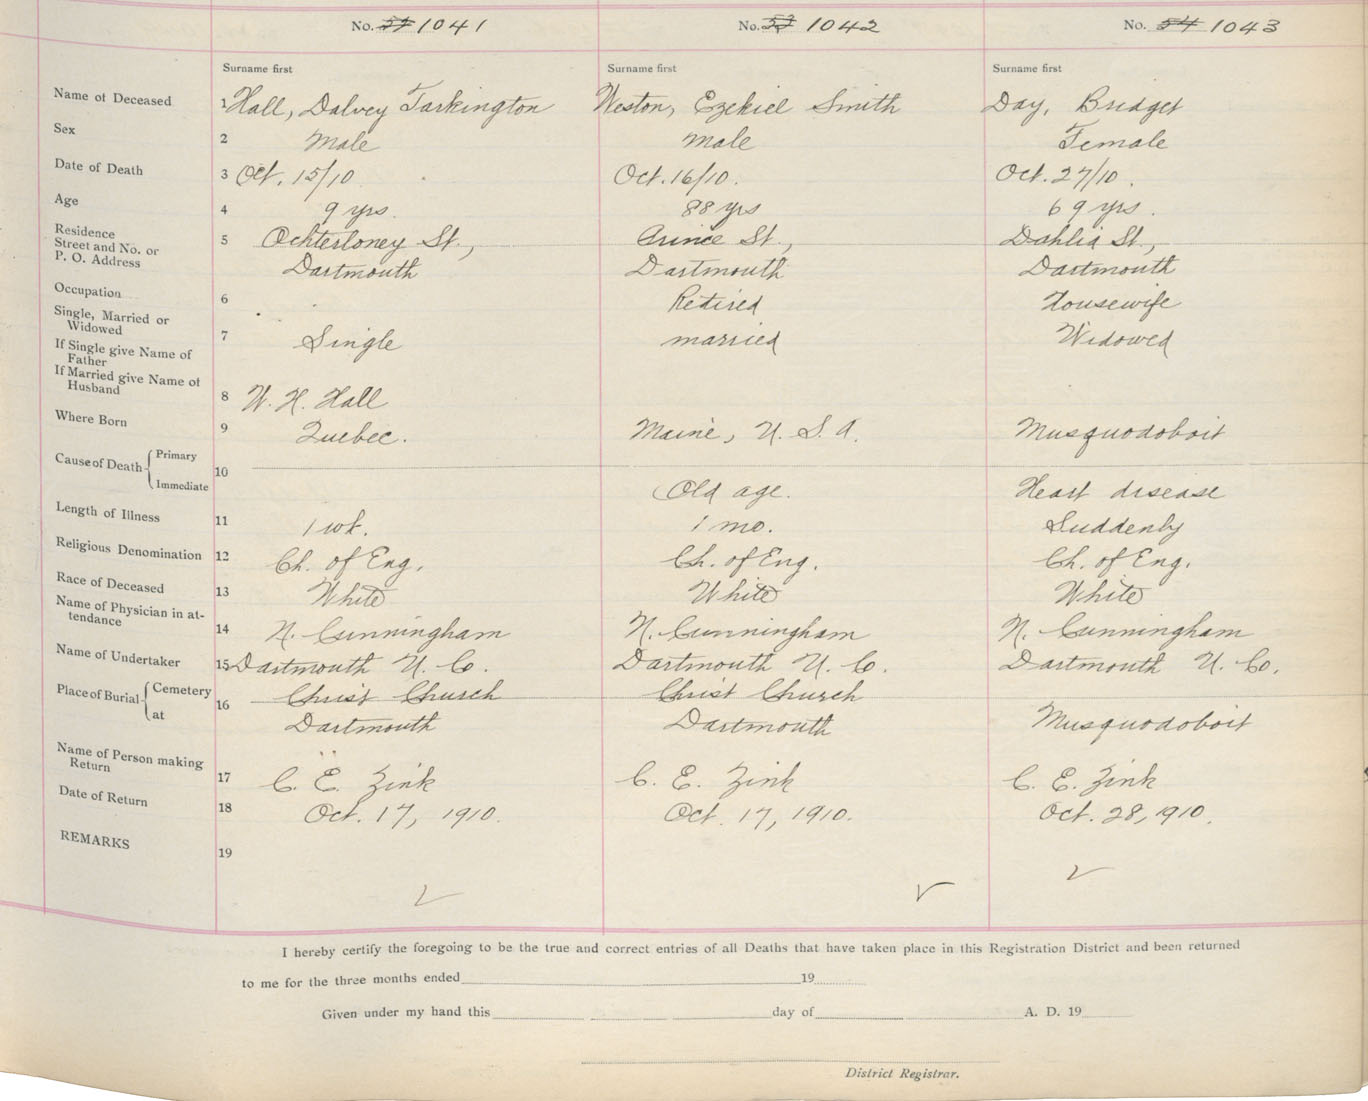 No. 52 1041 No. 53 1042 No. 54 1043
Surname first Surname first Surname first
Name of Deceased 1 Hall, Dalvey Tarkington Weston, Ezekiel Smith Day, Bridget
Sex 2 Male Male Female
Date of Death 3 Oct. 15/10 Oct. 16/10. Oct. 27/10.
Age 4 9 yrs. 88 yrs 69 yrs.
Residence
Street and No. or
P. O. Address 5 Ochterloney St., Prince St., Dahlia St.,
Dartmouth Dartmouth Dartmouth
Occupation 6 Retired Housewife
Single, Married or
Widowed 7 Single married Widowed
If Single give Name of
Father
If Married give Name of
Husband 8 W. H. Hall
Where Born 9 Quebec. Maine, U. S. A. Musquodoboit
Cause of Death Primary 10
Immediate Old age. Heart disease
Length of Illness 11 1 wk. 1 mo. Suddenly
Religious Denomination 12 Ch. of Eng. Ch. of Eng. Ch. of Eng.
Race of Deceased 13 White White White
Name of Physician in at-
tendance 14 N. Cunningham N. Cunningham N. Cunningham
Name of Undertaker 15 Dartmouth U. Co. Dartmouth U. Co. Dartmouth U. Co.
Place of Burial Cemetery 16 Christ Church Christ Church
at Dartmouth Dartmouth Musquodoboit
Name of Person making
Return 17 C. E. Zink C. E. Zink C. E. Zink
Date of Return 18 Oct. 17, 1910. Oct. 17, 1910. Oct. 28, 1910.
REMARKS 19
I hereby certify the foregoing to be the true and correct entries of all Deaths that have taken place in this Registration District and been returned
to me for the three months ended 19
Given under my hand this day of A. D. 19
District Registrar.